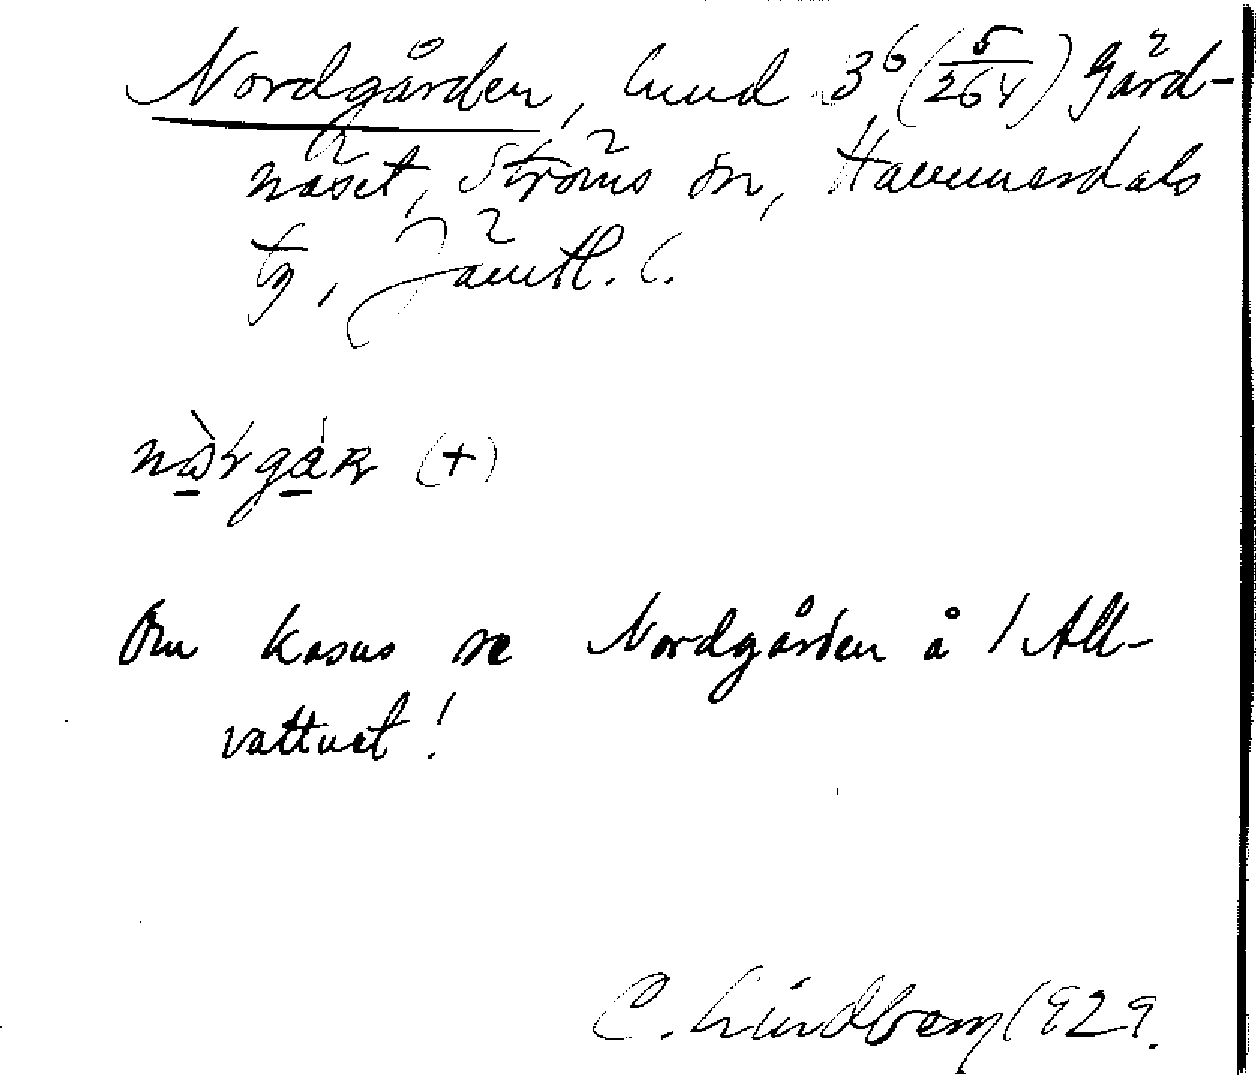 Nordgården, hmd 3⁶ (5/264) Gärd-
näset, Ströms sn, Hammerdals
tg, Jämtl. l.
nɷ̀rgár (+)
Om kasus se Nordgården å 1 All-
vattnet!
C. Lindberg 1929.